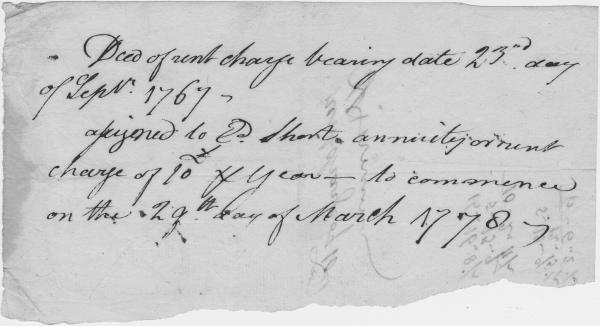 Deed of rent charge bearing date 23rd day
of Septr. 1767
assigned to Ed. Short annuity or rent
charge of 10£ ⅌ Year — to commence
on the 29th day of March 1778